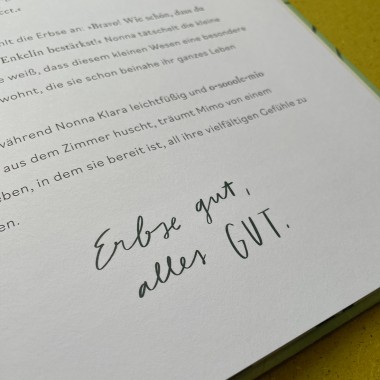 ect.«
hlt die Erbse an. »Bravo! Wie schön, dass du
Enkelin bestärkst!« Nonna tätschelt die kleine
e weiß, dass diesem kleinen Wesen eine besondere
wohnt, die sie schon beinahe ihr ganzes Leben
während Nonna Klara leichtfüßig und o-soooole-mio
aus dem Zimmer huscht, träumt Mimo von einem
eben, in dem sie bereit ist, all ihre vielfältigen Gefühle zu
en.
Erbse gut,
alles GUT.